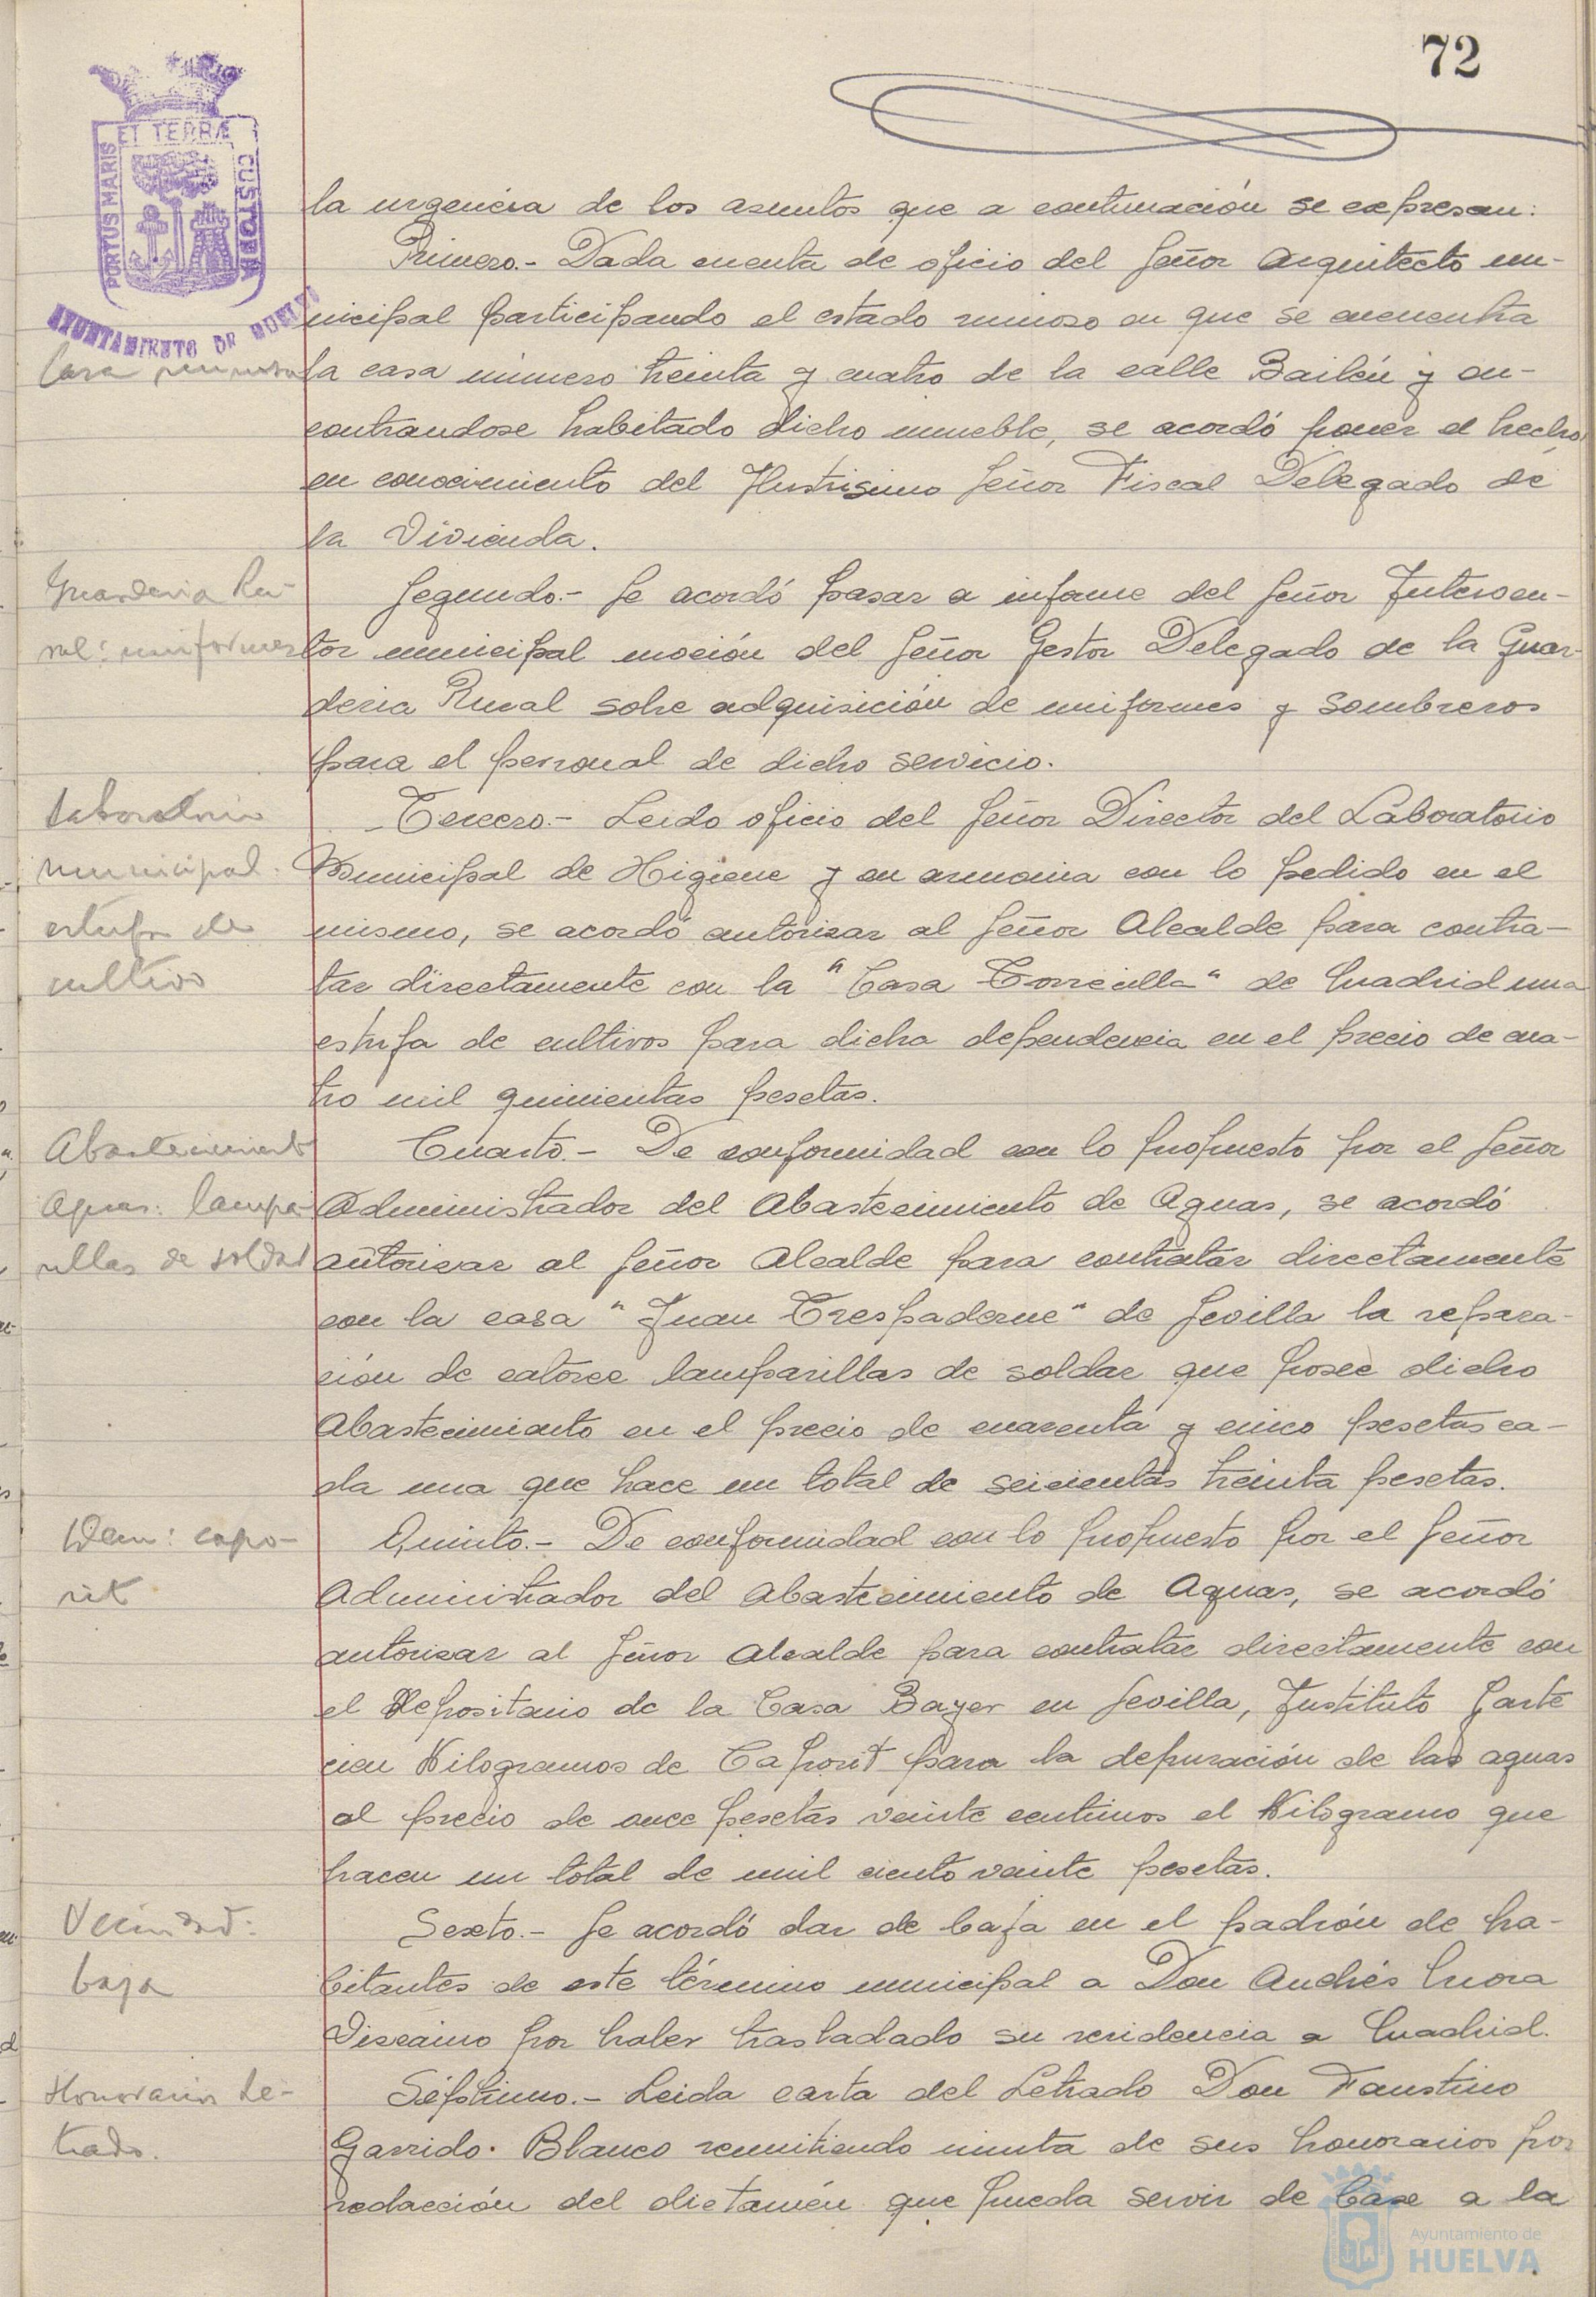 72
PORTUS MARIS
ET TERRÆ
CUSTODIA
AYUNTAMIENTO DE HUELVA
la urgencia de los asuntos que a continuación se expresan:
Primero.- Dada cuenta de oficio del Señor Arquitecto mu-
nicipal participando el estado ruinoso en que se encuentra
Casa ruinosa
la casa número treinta y cuatro de la calle Bailén y en-
contrandose habitado dicho inmueble, se acordó poner el hecho
en conocimiento del Ilustrisimo Señor Fiscal Delegado de
la Vivienda.
Guarderia Ru-
Segundo.- Se acordó pasar a informe del Señor Interven-
ral: uniformes
tor municipal moción del Señor Gestor Delegado de la Guar-
deria Rural sobre adquisición de uniformes y sombreros
para el personal de dicho servicio.
Laboratorio
Tercero.- Leido oficio del Señor Director del Laboratorio
municipal.
Municipal de Higiene y en armonia con lo pedido en el
estufa de
mismo, se acordó autorizar al Señor Alcalde para contra-
cultivo
tar directamente con la "Casa Torrecilla" de Madrid una
estufa de cultivos para dicha dependencia en el precio de cua-
tro mil quinientas pesetas.
Abastecimiento
Cuarto.- De conformidad con lo propuesto por el Señor
Aguas: lampa-
Administrador del Abastecimiento de Aguas, se acordó
rillas de soldar
autorizar al Señor Alcalde para contratar directamente
con la casa "Juan Trespaderne" de Sevilla la repara-
ción de catorce lamparillas de soldar que posee dicho
Abastecimiento en el precio de cuarenta y cinco pesetas ca-
da una que hace un total de seicientas treinta pesetas.
Idem: capo-
Quinto.- De conformidad con lo propuesto por el Señor
rit
Administrador del Abastecimiento de Aguas, se acordó
autorizar al Señor Alcalde para contratar directamente con
el Depositario de la Casa Bayer en Sevilla, Instituto
cien Kilogramos de Caporit para la depuración de las aguas
al precio de once pesetas veinte centimos el Kilogramo que
hacen un total de mil ciento veinte pesetas.
Vecindad:
Sexto.- Se acordó dar de baja en el padrón de ha-
baja
bitantes de este término municipal a Don Andrés Mora
Viscaino por haber trasladado su residencia a Madrid.
Honorarios Le-
Séptimo.- Leida carta del Letrado Don Faustino
trado.
Garrido Blanco remitiendo minuta de sus honorarios por
redacción del dictamén que pueda servir de base a la
Ayuntamiento de
HUELVA